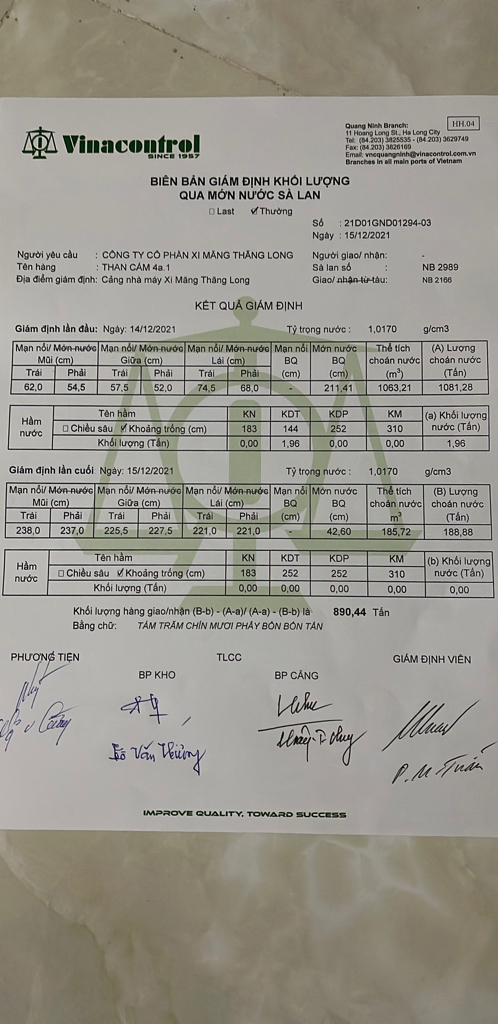 Vinacontrol
SINCE 1957
Quang Ninh Branch:
11 Hoang Long St., Ha Long City
Tel: (84.203) 3825535 - (84.203) 3629749
Fax: (84.203) 3826169
Email: vncquangninh@vinacontrol.com.vn
Branches in all main ports of Vietnam
HH.04
BIÊN BẢN GIÁM ĐỊNH KHỐI LƯỢNG
QUA MỚN NƯỚC SÀ LAN
□ Last ☑Thường
Số : 21D01GND01294-03
Ngày : 15/12/2021
Người yêu cầu : CÔNG TY CỔ PHẦN XI MĂNG THĂNG LONG Người giao/ nhận: -
Tên hàng : THAN CÁM 4a.1 Sà lan số : NB 2989
Địa điểm giám định: Cảng nhà máy Xi Măng Thăng Long Giao/ nhận từ tàu: NB 2166
KẾT QUẢ GIÁM ĐỊNH
Giám định lần đầu: Ngày: 14/12/2021 Tỷ trọng nước : 1,0170 g/cm3
Mạn nổi/ Mớn nước Mạn nổi/ Mớn nước Mạn nổi/ Mớn nước Mạn nổi Mớn nước Thể tích (A) Lượng
Mũi (cm) Giữa (cm) Lái (cm) BQ BQ choán nước choán nước
Trái Phải Trái Phải Trái Phải (cm) (cm) (m3) (Tấn)
62,0 54,5 57,5 52,0 74,5 68,0 - 211,41 1063,21 1081,28
Hầm nước Tên hầm KN KDT KDP KM (a) Khối lượng
□ Chiều sâu ☑Khoảng trống (cm) 183 144 252 310 nước (Tấn)
Khối lượng (Tấn) 0,00 1,96 0,00 0,00 1,96
Giám định lần cuối Ngày: 15/12/2021 Tỷ trọng nước : 1,0170 g/cm3
Mạn nổi/ Mớn nước Mạn nổi/ Mớn nước Mạn nổi/ Mớn nước Mạn nổi Mớn nước Thể tích (B) Lượng
Mũi (cm) Giữa (cm) Lái (cm) BQ BQ choán nước choán nước
Trái Phải Trái Phải Trái Phải (cm) (cm) m3 (Tấn)
238,0 237,0 225,5 227,5 221,0 221,0 - 42,60 185,72 188,88
Hầm nước Tên hầm KN KDT KDP KM (b) Khối lượng
□ Chiều sâu ☑Khoảng trống (cm) 183 252 252 310 nước (Tấn)
Khối lượng (Tấn) 0,00 0,00 0,00 0,00 0,00
Khối lượng hàng giao/nhận (B-b) - (A-a)/ (A-a) - (B-b) là 890,44 Tấn
Bằng chữ: TÁM TRĂM CHÍN MƯƠI PHẨY BỐN BỐN TẤN
PHƯƠNG TIỆN TLCC GIÁM ĐỊNH VIÊN
BP KHO BP CẢNG
P.M. Tuấn
IMPROVE QUALITY, TOWARD SUCCESS